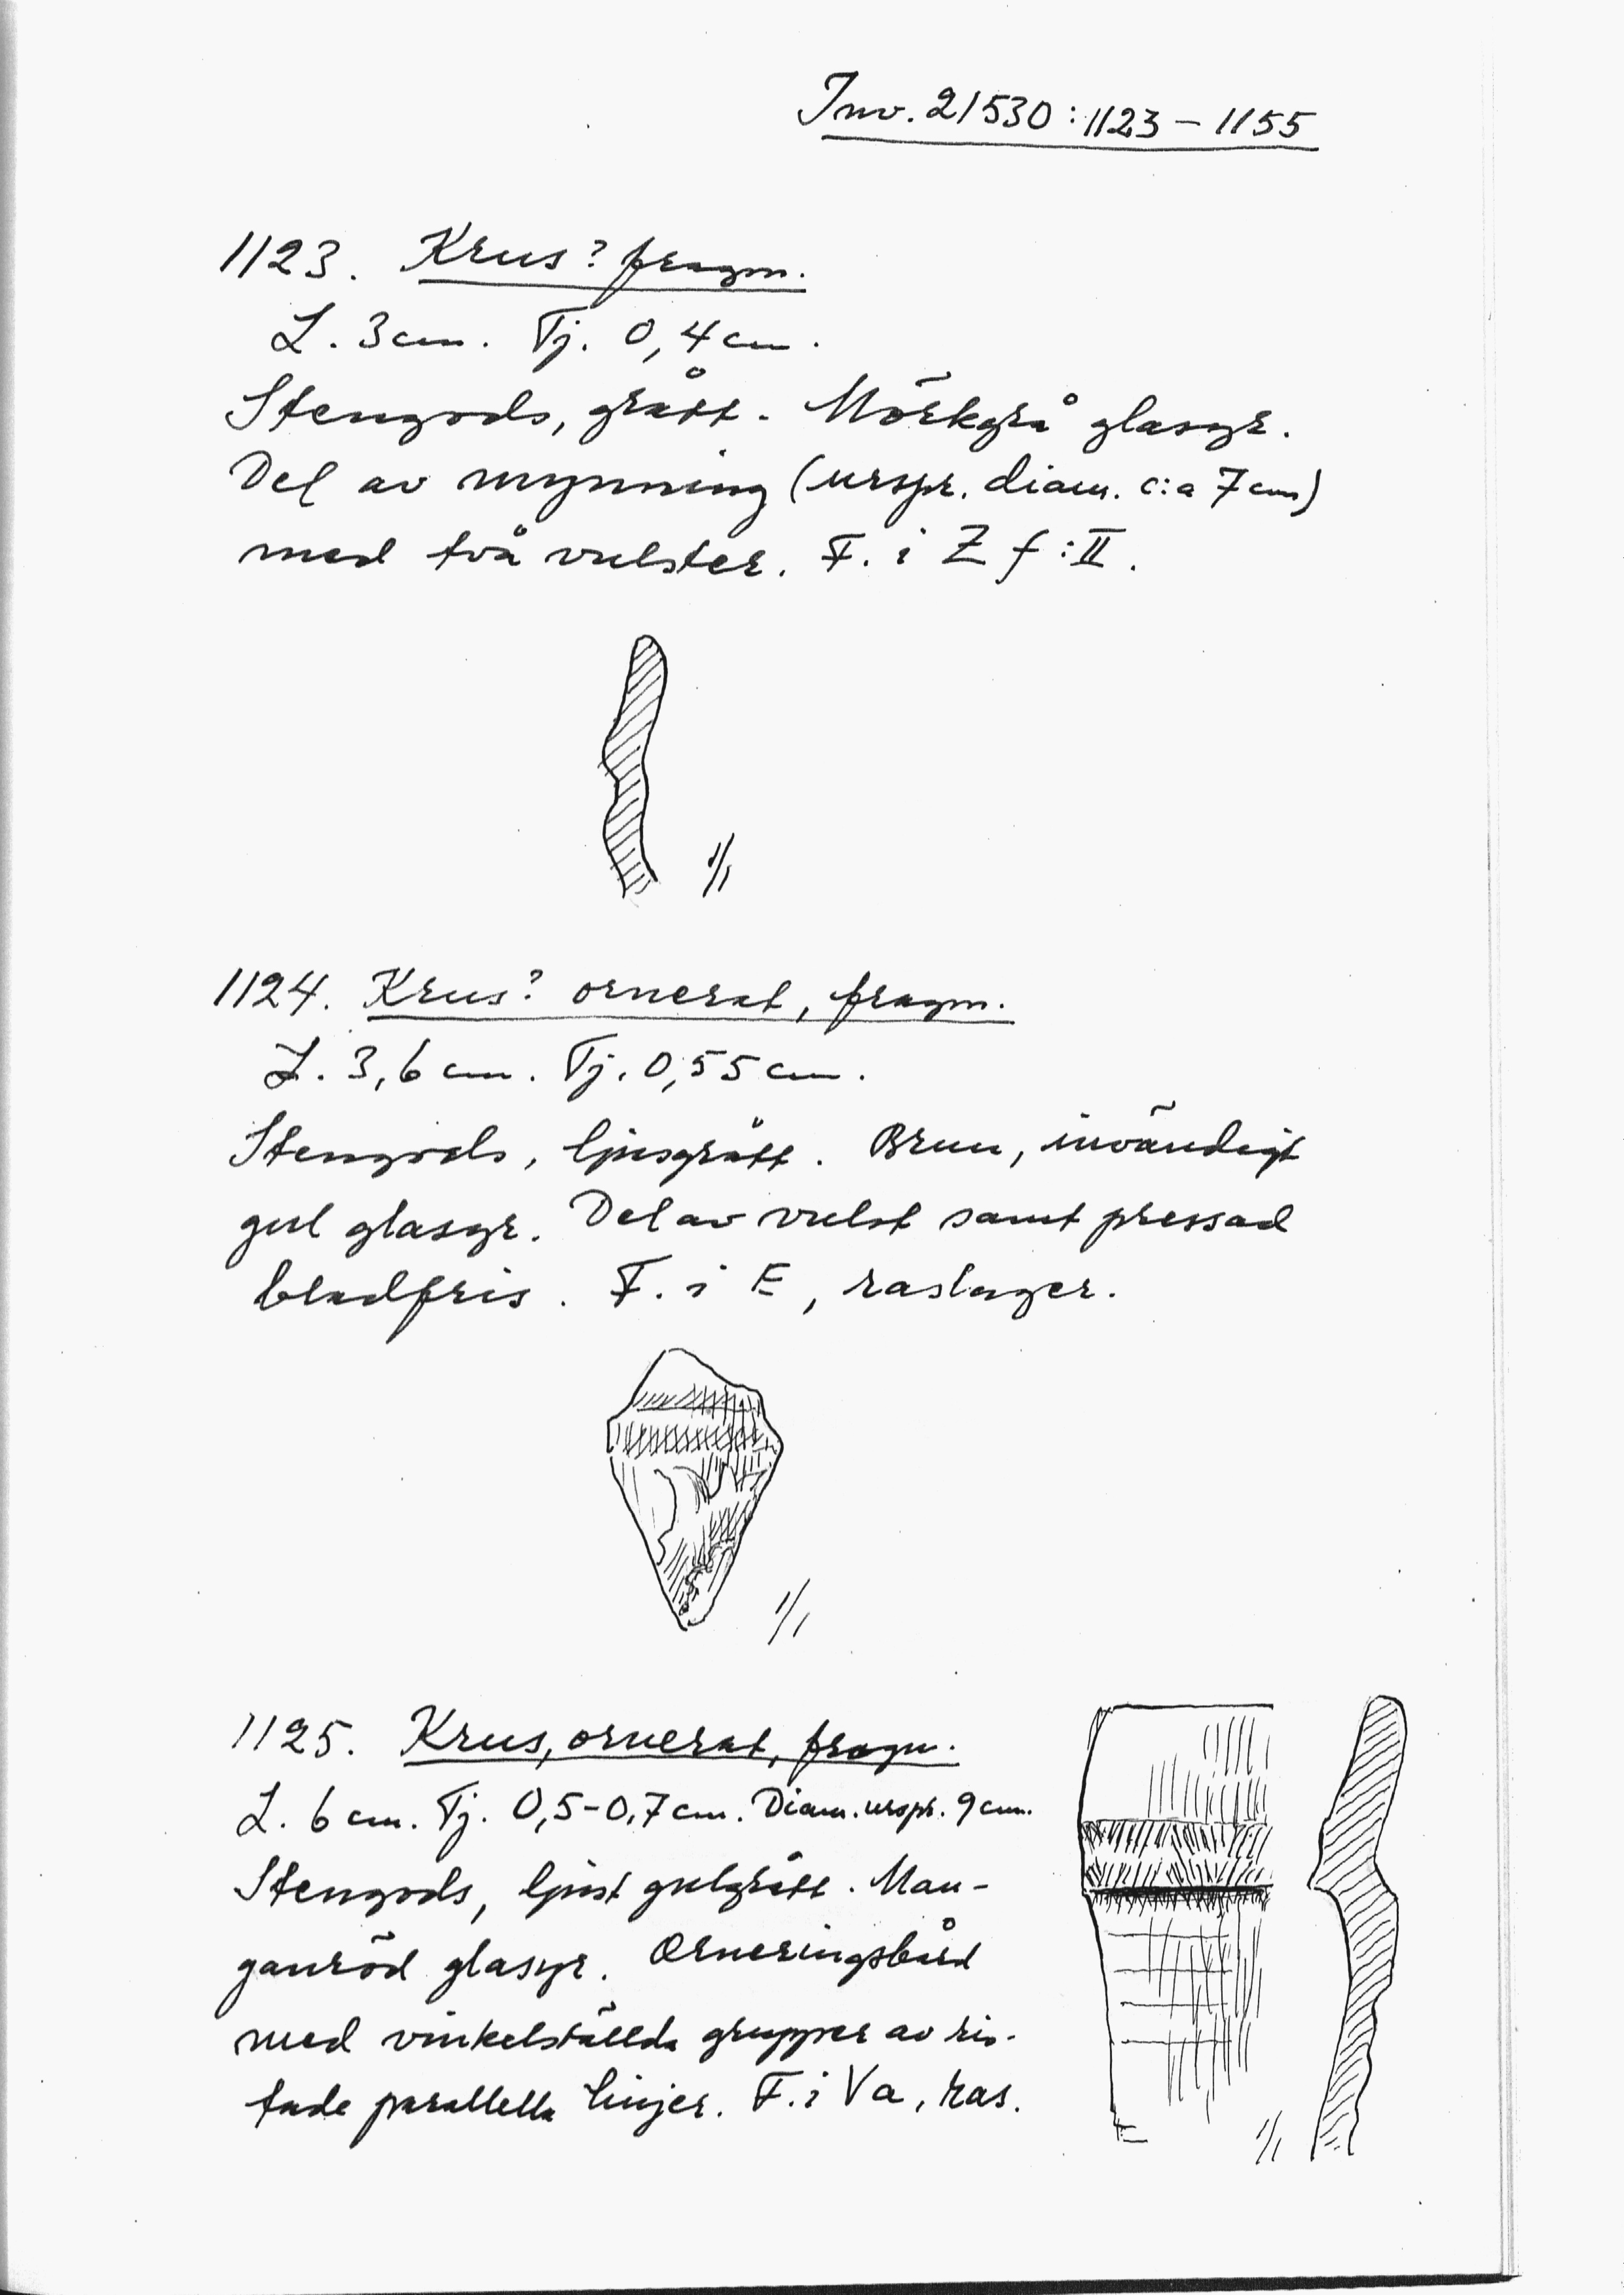 Inv. 21530:1123–1155
1123. Krus? fragm.
L. 3 cm. Tj. 0,4 cm.
Stengods, grått. Mörkgrå glasyr.
Del av mynning (urspr. diam. c:a 7 cm)
med två vulster. F. i Z f:II.
1/1
1124. Krus? ornerat, fragm.
L. 3,6 cm. Tj. 0,55 cm.
Stengods, ljusgrått. Brun, invändigt
gul glasyr. Del av vulst samt pressad
bladfris. F. i E, raslager.
1/1
1125. Krus, ornerat, fragm.
L. 6 cm. Tj. 0,5-0,7 cm. Diam. urspr. 9 cm.
Stengods, ljust gulgrått. Man-
ganröd glasyr. Orneringsbård
med vinkelställda grupper av ris-
tade parallella linjer. F. i Va, ras.
1/1